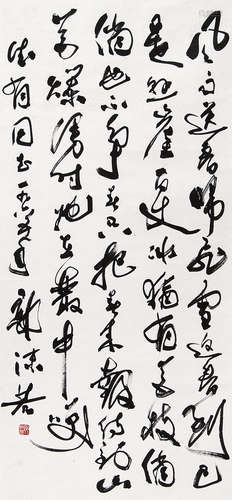 风雨送春归飞雪迎春到已
是悬崖百丈冰犹有花枝俏
俏也不争春只把春来报待到山
花烂漫时她在丛中笑
郭沫若